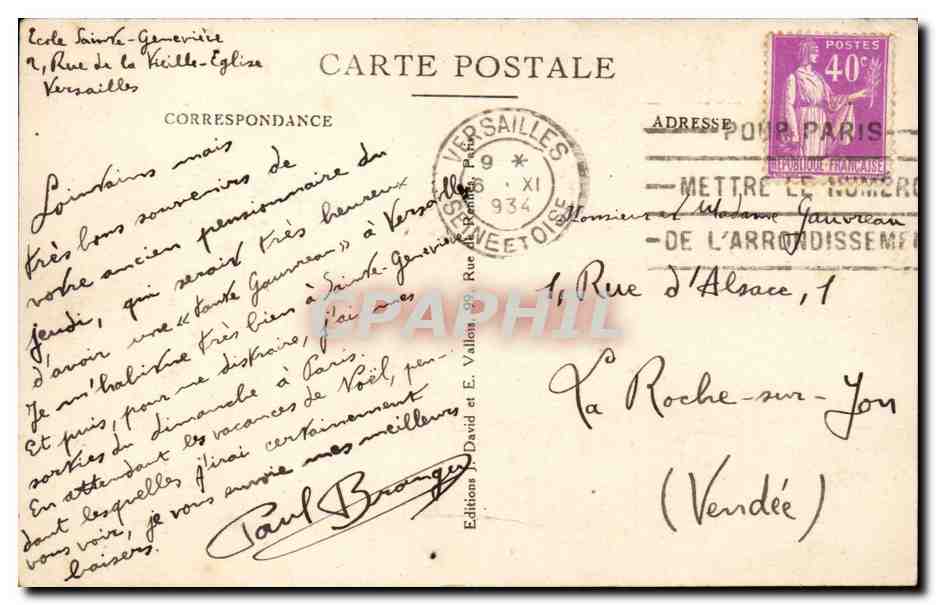 Ecole Sainte-Geneviève
2, Rue de la Vieille-Eglise
Versailles
CARTE POSTALE
CORRESPONDANCE
ADRESSE
Lointains mais
très bons souvenirs de
votre ancien pensionnaire du
jeudi, qui serait très heureux
d'avoir une « tante Gauvreau » à Versailles
Je m'habitue très bien à Sainte-Geneviève
Et puis, pour me distraire, j'ai mes
sorties du dimanche à Paris.
En attendant les vacances de Noël, pen-
dant lesquelles j'irai certainement
vous voir, je vous envoie mes meilleurs
baisers.
Paul Branger
Editions J. David et E. Vallois, 99, Rue de Rennes, Paris
VERSAILLES
9 *
6 · XI
934
SEINE ET OISE
POSTES
40c
REPUBLIQUE FRANÇAISE
POUR PARIS
METTRE LE NUMERO
DE L'ARRONDISSEME
Monsieur et Madame Gauvreau
1, Rue d'Alsace, 1
La Roche-sur-Yon
(Vendée)
CPAPHIL